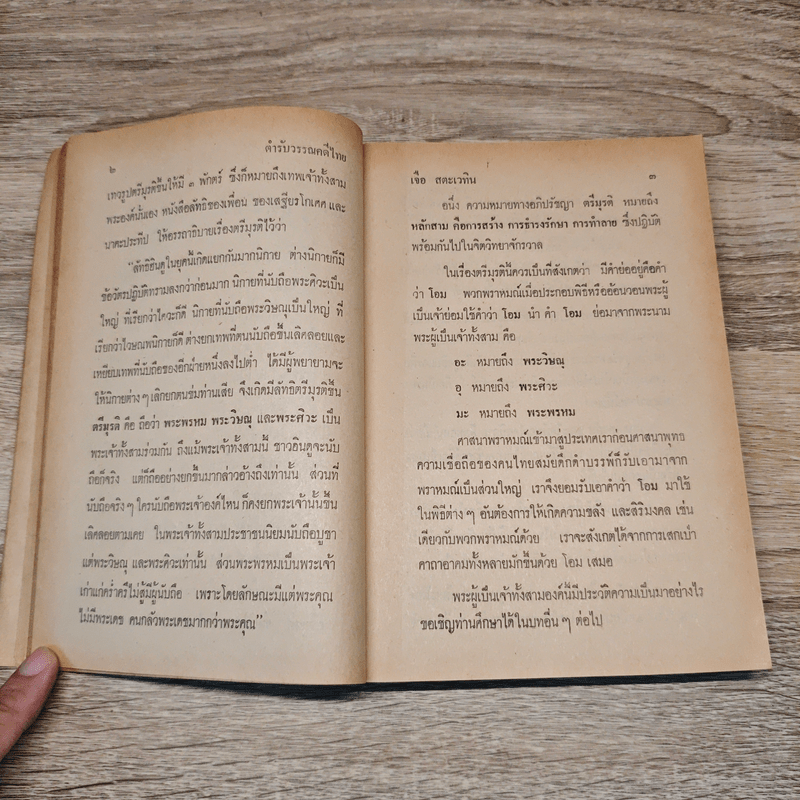 ๒ ตำรับวรรณคดีไทย
เทวรูปตรีมุรติขึ้นให้มี ๓ พักตร์ ซึ่งก็หมายถึงเทพเจ้าทั้งสาม
พระองค์นั้นเอง หนังสือลัทธิของเพื่อน ของเสฐียรโกเศศ และ
นาคะประทีป ให้อรรถาธิบายเรื่องตรีมุรติไว้ว่า
"ลัทธิฮินดูในยุคนี้เกิดแยกกันมากนิกาย ต่างนิกายก็มี
ข้อวัตรปฏิบัติทรามลงกว่าก่อนมาก นิกายที่นับถือพระศิวะเป็น
ใหญ่ ที่เรียกว่าไศวะก็ดี นิกายที่นับถือพระวิษณุเป็นใหญ่ ที่
เรียกว่าไวษณพนิกายก็ดี ต่างยกเทพที่ตนนับถือขึ้นเลิศลอยและ
เหยียบเทพที่นับถือของอีกฝ่ายหนึ่งลงไปต่ำ ได้มีผู้พยายามจะ
ให้นิกายต่างๆ เลิกยกตนข่มท่านเสีย จึงเกิดมีลัทธิตรีมุรติขึ้น
ตรีมุรติ คือ ถือว่า พระพรหม พระวิษณุ และพระศิวะ เป็น
พระเจ้าทั้งสามร่วมกัน ถึงแม้พระเจ้าทั้งสามนี้ ชาวฮินดูจะนับ
ถือก็จริง แต่ก็ถืออย่างยกขึ้นมากล่าวอ้างถึงเท่านั้น ส่วนที่
นับถือจริงๆ ใครนับถือพระเจ้าองค์ไหน ก็คงยกพระเจ้านั้นขึ้น
เลิศลอยตามเคย ในพระเจ้าทั้งสามประชาชนนิยมนับถือบูชา
แต่พระวิษณุ และพระศิวะเท่านั้น ส่วนพระพรหมเป็นพระเจ้า
เก่าแก่คร่ำครึไม่สู้มีผู้นับถือ เพราะโดยลักษณะมีแต่พระคุณ
ไม่มีพระเดช คนกลัวพระเดชมากกว่าพระคุณ"
เจือ สตะเวทิน ๓
อนึ่ง ความหมายทางอภิปรัชญา ตรีมุรติ หมายถึง
หลักสาม คือการสร้าง การธำรงรักษา การทำลาย ซึ่งปฏิบัติ
พร้อมกันไปในจิตวิทยาจักรวาล
ในเรื่องตรีมุรตินี้ควรเป็นที่สังเกตว่า มีคำย่ออยู่คือคำ
ว่า โอม พวกพราหมณ์เมื่อประกอบพิธีหรืออ้อนวอนพระผู้
เป็นเจ้าย่อมใช้คำว่า โอม นำ คำ โอม ย่อมาจากพระนาม
พระผู้เป็นเจ้าทั้งสาม คือ
อะ หมายถึง พระวิษณุ
อุ หมายถึง พระศิวะ
มะ หมายถึง พระพรหม
ศาสนาพราหมณ์เข้ามาสู่ประเทศเราก่อนศาสนาพุทธ
ความเชื่อถือของคนไทยสมัยดึกดำบรรพ์ก็รับเอามาจาก
พราหมณ์เป็นส่วนใหญ่ เราจึงยอมรับเอาคำว่า โอม มาใช้
ในพิธีต่างๆ อันต้องการให้เกิดความขลัง และสิริมงคล เช่น
เดียวกับพวกพราหมณ์ด้วย เราจะสังเกตได้จากการเสกเป่า
คาถาอาคมทั้งหลายมักขึ้นด้วย โอม เสมอ
พระผู้เป็นเจ้าทั้งสามองค์นี้มีประวัติความเป็นมาอย่างไร
ขอเชิญท่านศึกษาได้ในบทอื่นๆ ต่อไป